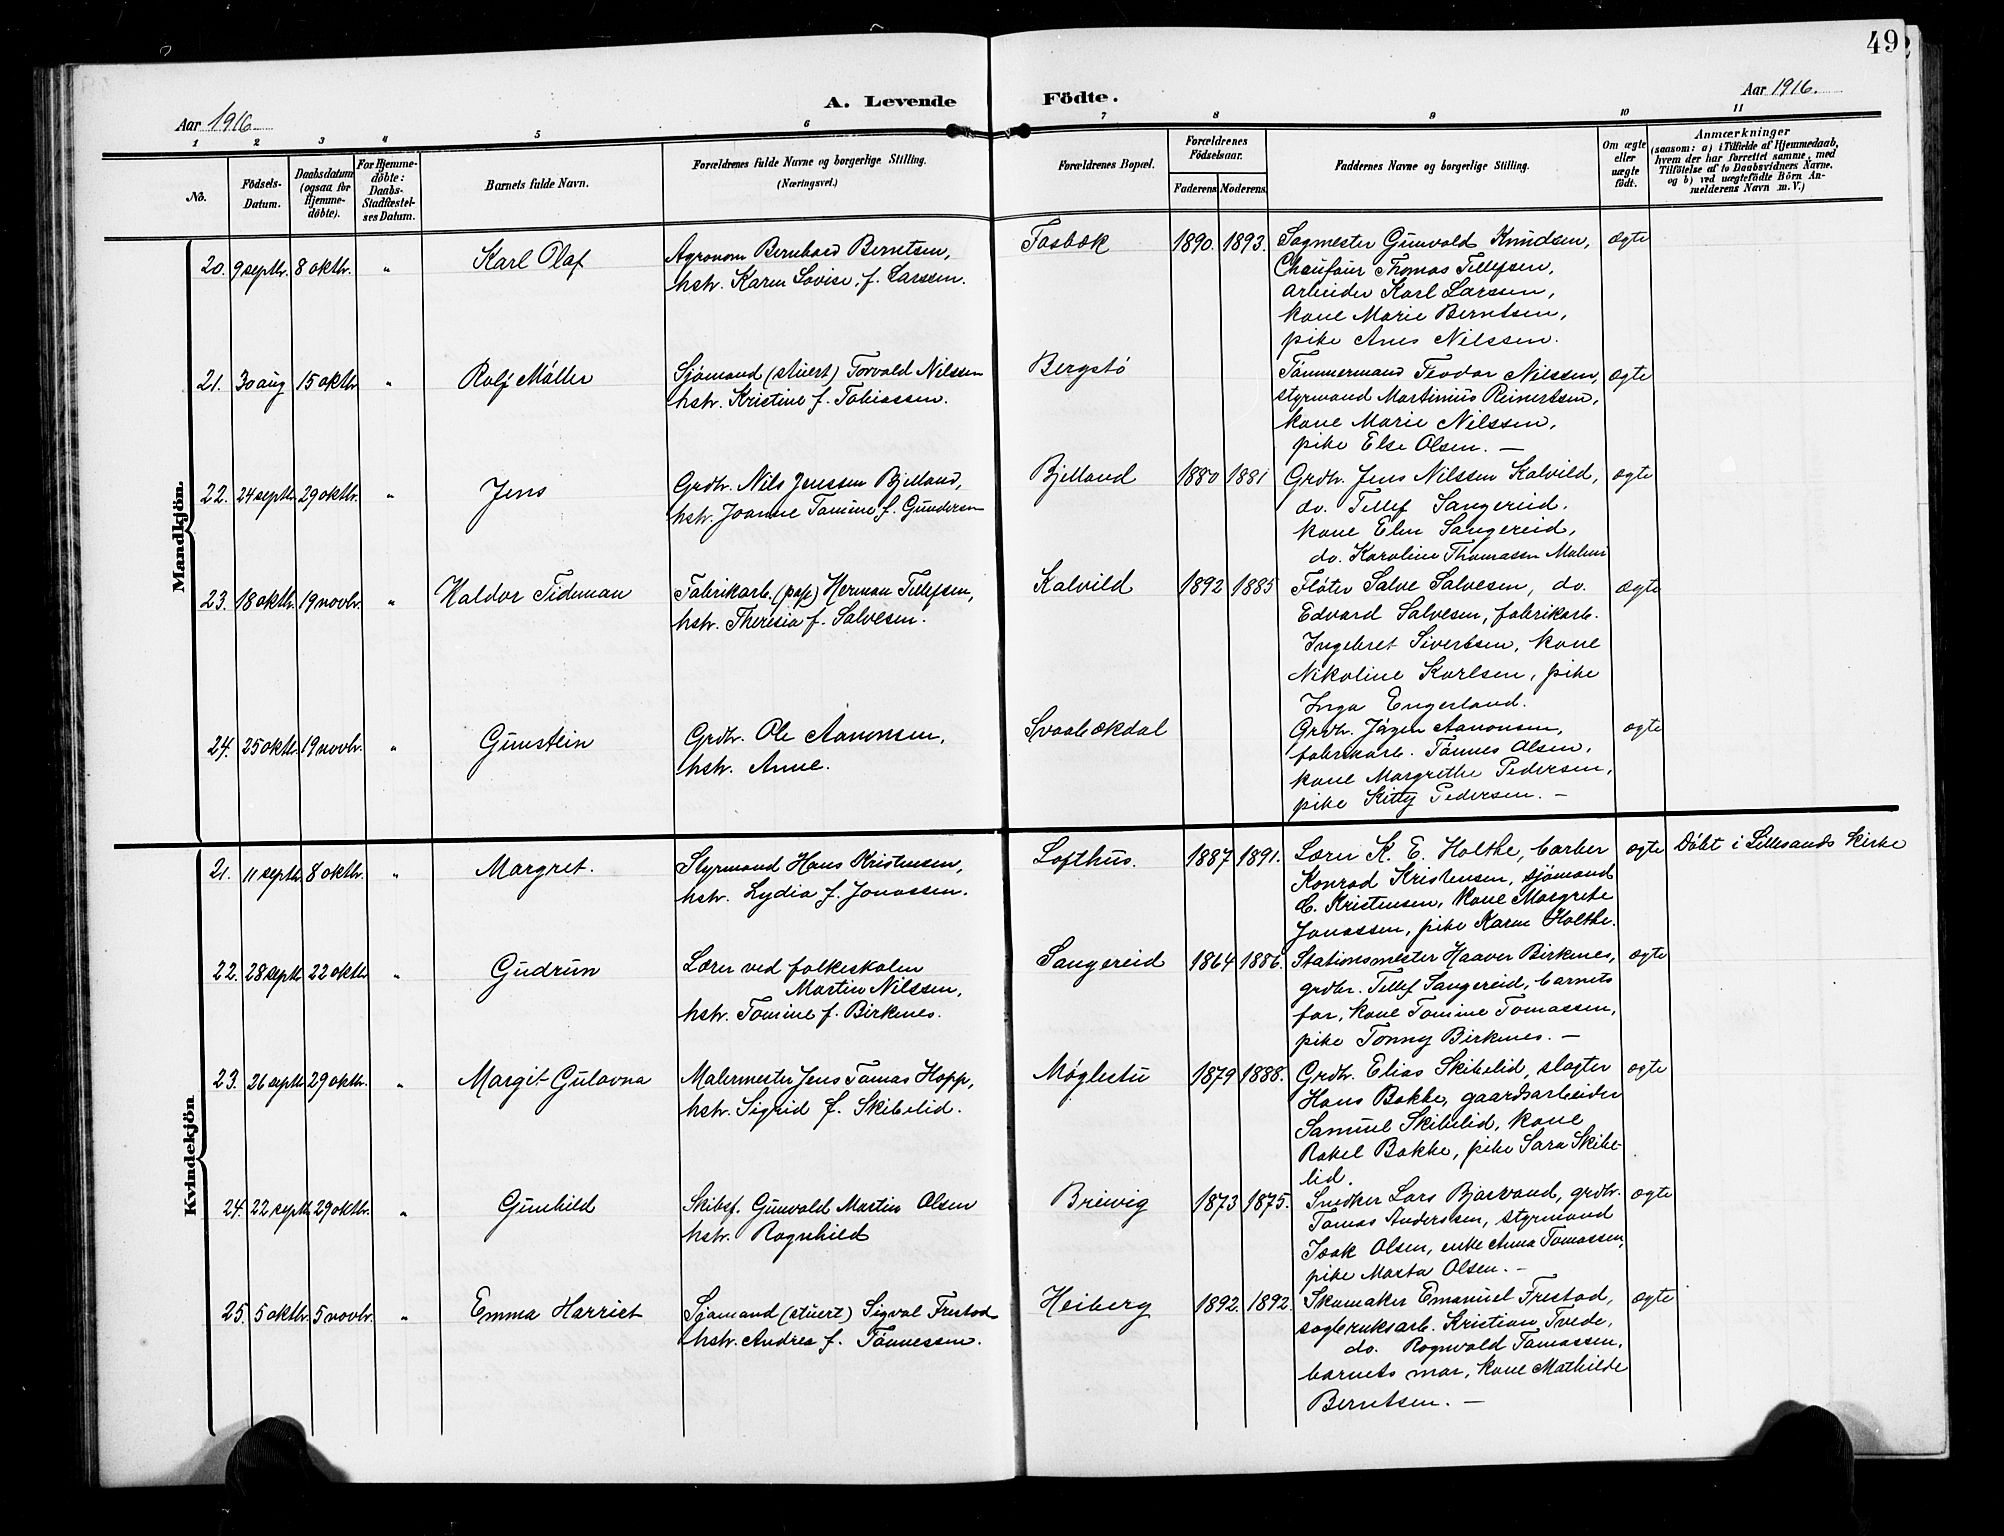 49
Aar 1916.
A. Levende Födte.
Aar 1916.
1 2 3 4 5 6 7 8 9 10 11
No.
Födsels-Datum.
Daabsdatum (ogsaa for Hjemme-döbte).
For Hjemme-döbte: Daabs-Stadfæstel-ses Datum.
Barnets fulde Navn.
Forældrenes fulde Navne og borgerlige Stilling.
(Næringsvei.)
Forældrenes Bopæl.
Forældrenes Födselsaar.
Faderens. Moderens.
Faddernes Navne og borgerlige Stilling.
Om ægte eller uægte födt.
Anmærkninger
(saasom: a) i Tilfælde af Hjemmedaab,
hvem der har forrettet samme, med
Tilföielse af to Daabsvidners Navne.
og b) ved uægtefödte Börn An-
melderens Navn m. V.)
Mandkjön.
20. 9 septbr. 8 oktbr. " Karl Olaf
Agronom Bernhard Berntsen,
hstr. Karen Lovise, f. Larssen.
Tosbæk 1890. 1893.
Sagmester Gunvald Knudsen,
Chaufør Thomas Tellefsen,
arbeider Karl Larssen,
kone Marie Berntsen,
pike Anes Nilssen.
ægte
21. 30 aug 15 oktbr " Rolf Møller
Sjømand (stuert) Torvald Nilssen
hstr. Kristine f. Tobiassen.
Bergstø
Tømmermand Teodor Nilssen,
styrmand Martinius Reinertsen,
kone Marie Nilssen,
pike Else Olsen. —
ægte
22. 24 septbr 29 oktbr. " Jens
Grdbr. Nils Jenssen Bjelland,
hstr. Joanne Tomine f. Gundersen
Bjelland 1880 1881
Grdbr. Jens Nilssen Kalvild,
do. Tellef Sangereid.
kone Elen Sangereid,
do. Karoline Thomassen Moleni
ægte
23. 18 oktbr. 19 novbr. " Haldor Tideman
Fabrikarb. (pap) Herman Tellefsen,
hstr. Theresia f. Salvesen.
Kalvild 1892 1885
Fløter Salve Salvesen, do.
Edvard Salvesen, fabrikarb.
Ingebret Sivertsen, kone
Nikoline Karlsen, pike
Inga Engesland.
ægte
24. 25 oktbr. 19 novbr. " Gunstein
Grdbr. Ole Aanonsen,
hstr. Anne.
Svaabækdal
Grdbr. Jørgen Aanonsen,
fabrikarb. Tønnes Olsen,
kone Margrethe Pedersen,
pike Kitty Pedersen. —
ægte
Kvindekjön
21. 11 septbr. 8 oktbr. " Margret.
Styrmand Hans Kristensen,
hstr. Lydia f. Jonassen.
Lofthus. 1887 1891.
Lærer K. E. Holthe, barber
Konrad Kristensen, sjømand
C. Kristensen, kone Margrete
Jonassen, pike Karen Holthe.
ægte
Døbt i Lillesands Kirke
22. 28 septbr 22 oktbr " Gudrun
Lærer ved folkeskolen
Martin Nilssen,
hstr. Tomine f. Birkenes.
Sangereid 1864 1886.
Stationsmester Haaver Birkenes,
grdbr. Tellef Sangereid, barnets
far, kone Tomine Tomassen,
pike Tonny Birkenes. —
ægte
23. 26 septbr 29 oktbr. " Margit Gulovna
Malermester Jens Tomas Hopp,
hstr. Sigrid f. Skibelid.
Møglestu 1879 1888.
Grdbr. Elias Skibelid, slagter
Hans Bakke, gaardsarbeider
Samuel Skibelid, kone
Rakel Bakke, pike Sara Skibe-
lid.
ægte
24. 22 septbr 29 oktbr. " Gunhild
Skibsf. Gunvald Martin Olsen
hstr. Ragnhild
Breivig 1873 1875.
Snedker Lars Bjorvand, grdbr.
Tomas Anderssen, styrmand
Isak Olsen, enke Anna Tomassen,
pike Marta Olsen. —
ægte
25. 5 oktbr. 5 novbr. " Emma Harriet
Sjømand (stuert) Sigval Frestad
hstr. Andrea f. Tønnessen.
Heiberg 1892. 1892.
Skomaker Emanuel Frestad,
sagbruksarb. Kristian Tvede,
do. Rognvald Tomassen,
barnets mor, kone Mathilde
Berntsen. —
ægte